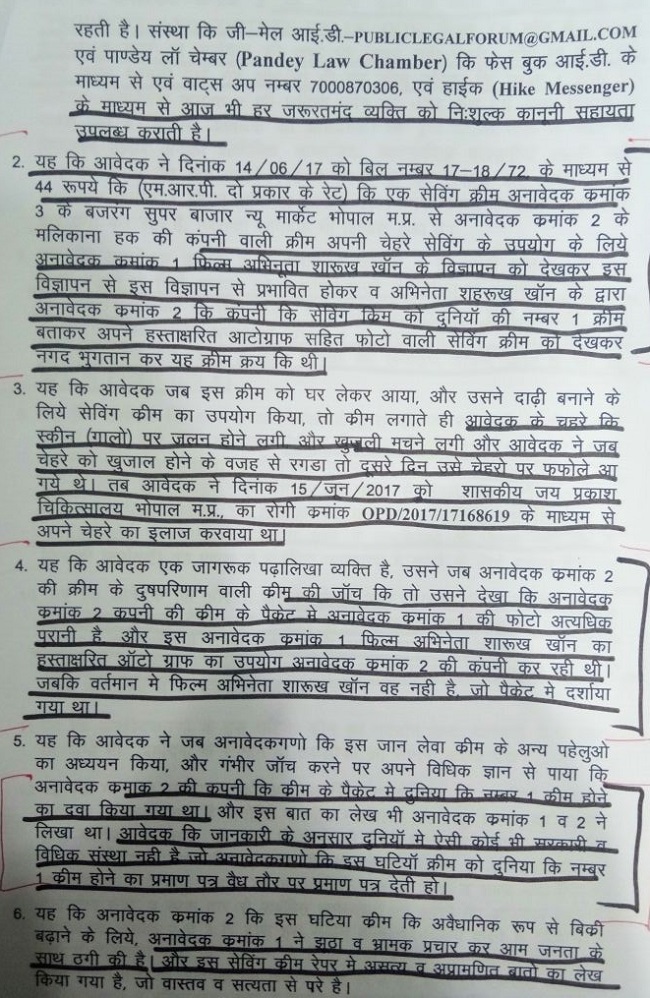 रहती है। संस्था कि जी-मेल आई.डी.-PUBLICLEGALFORUM@GMAIL.COM
एवं पाण्डेय लॉ चेम्बर (Pandey Law Chamber) कि फेस बुक आई.डी. के
माध्यम से एवं वाट्स अप नम्बर 7000870306, एवं हाईक (Hike Messenger)
के माध्यम से आज भी हर जरूरतमंद व्यक्ति को निःशुल्क कानूनी सहायता
उपलब्ध कराती है।
2. यह कि आवेदक ने दिनांक 14/06/17 को बिल नम्बर 17-18/72, के माध्यम से
44 रूपये कि (एम.आर.पी. दो प्रकार के रेट) कि एक सेविंग क्रीम अनावेदक कमांक
3 के बजरंग सुपर बाजार न्यू मार्केट भोपाल म.प्र. से अनावेदक कमांक 2 के
मलिकाना हक की कंपनी वाली क्रीम अपनी चेहरे सेविंग के उपयोग के लिये
अनावेदक कमांक 1 फिल्म अभिनूता शारूख खॉन के विज्ञापन को देखकर इस
विज्ञापन से इस विज्ञापन से प्रभावित होकर व अभिनेता शहरूख खॉन के द्वारा
अनावेदक कमांक 2 कि कंपनी कि सेविंग क्रिम को दुनियॉ की नम्बर 1 क्रीम
बताकर अपने हस्ताक्षरित आटोग्राफ सहित फोटो वाली सेविंग क्रीम को देखकर
नगद भुगतान कर यह क्रीम क्रय कि थी।
3. यह कि आवेदक जब इस क्रीम को घर लेकर आया, और उसने दाढ़ी बनाने के
लिये सेविंग कीम का उपयोग किया, तो कीम लगाते ही आवेदक के चहरे कि
स्कीन (गालो) पर जलन होने लगी, और खुजली मचने लगी और आवेदक ने जब
चेहरे को खूजाल होने के वजह से रगडा तो दूसरे दिन उसे चेहरो पर फफोले आ
गये थे। तब आवेदक ने दिनांक 15/जून/2017 को शासकीय जय प्रकाश
चिकित्सालय भोपाल म.प्र., का रोगी कमांक OPD/2017/17168619 के माध्यम से
अपने चेहरे का इलाज करवाया था।
4. यह कि आवेदक एक जागरूक पढ़ालिखा व्यक्ति है, उसने जब अनावेदक कमांक 2
की क्रीम के दुषपरिणाम वाली कीम की जॉच कि तो उसने देखा कि अनावेदक
कमांक 2 कपनी की कीम के पैकेट मे अनावेदक कमांक 1 की फोटो अत्यधिक
पुरानी है, और इस अनावेदक कमांक 1 फिल्म अभिनेता शारूख खॉन का
हस्ताक्षरित ऑटो ग्राफ का उपयोग अनावेदक कमांक 2 की कंपनी कर रही थी।
जबकि वर्तमान मे फिल्म अभिनेता शारूख खॉन वह नही है, जो पैकेट मे दर्शाया
गया था।
5. यह कि आवेदक ने जब अनावेदकगणो कि इस जान लेवा कीम के अन्य पहेलुओ
का अध्ययन किया, और गंभीर जॉच करने पर अपने विधिक ज्ञान से पाया कि
अनावेदक कमाक 2 की कपनी कि कीम के पैकेट मे दुनिया कि नम्बर 1 कीम होने
का दवा किया गया था। और इस बात का लेख भी अनावेदक कमांक 1 व 2 ने
लिखा था। आवेदक कि जानकारी के अनुसार दुनियॉ मे ऐसी कोई भी सरकारी व
विधिक संस्था नही है जो अनावेदकगणो कि इस घटियॉ क्रीम को दुनिया कि नम्बर
1 कीम होने का प्रमाण पत्र वैध तौर पर प्रमाण पत्र देती हो।
6. यह कि अनावेदक कमांक 2 कि इस घटिया कीम कि अवैधानिक रूप से बिकी
बढ़ाने के लिये, अनावेदक कमांक 1 ने झूठा व भ्रामक प्रचार कर आम जनता के
साथ ठगी की है। और इस सेविंग कीम रेपर मे असत्य व अप्रामणित बातो का लेख
किया गया है, जो वास्तव व सत्यता से परे है।